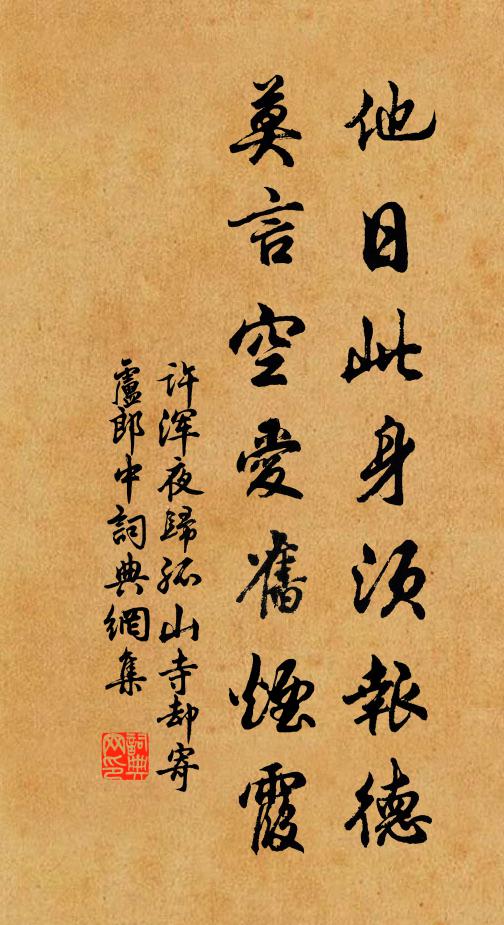 他日此身须報德
莫言空愛舊煙霞
许渾夜歸孤山寺却寄
盧郎中詞典網集
詞典
网印